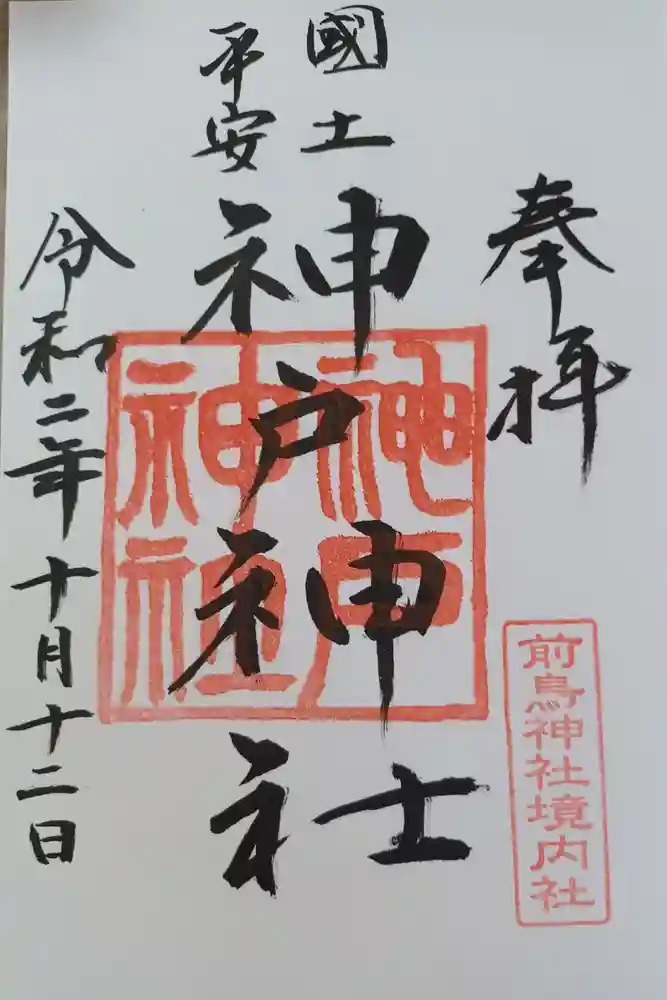 奉拝
國土
平安
神戸神社
令和二年十月十二日
神戸
神社
前鳥神社境内社